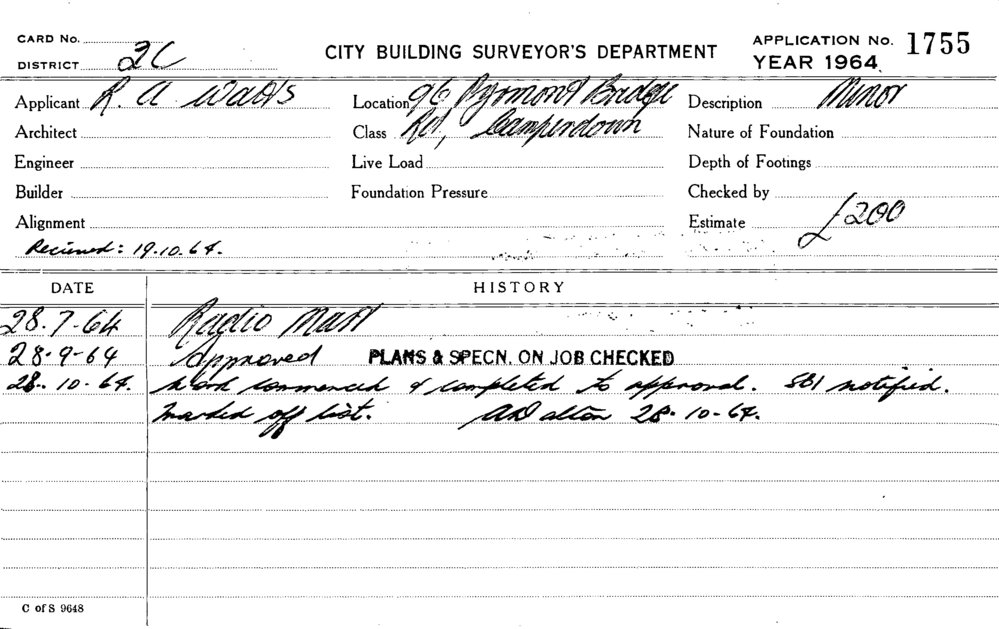 CARD No.
DISTRICT 2C
CITY BUILDING SURVEYOR'S DEPARTMENT
APPLICATION No. 1755
YEAR 1964
Applicant R. A. Watts
Location 96 Pyrmont Bridge
Description Minor
Architect
Class Rd, Camperdown
Nature of Foundation
Engineer
Live Load
Depth of Footings
Builder
Foundation Pressure
Checked by
Alignment
Estimate £200
Recieved: 19.10.64.
DATE
HISTORY
28.7.64 Radio Mast
28.9.64 Approved PLANS & SPECN. ON JOB CHECKED
28.10.64. Work commenced & completed to approval. SBI notified.
Marked off list. 28.10.64.
C of S 9648